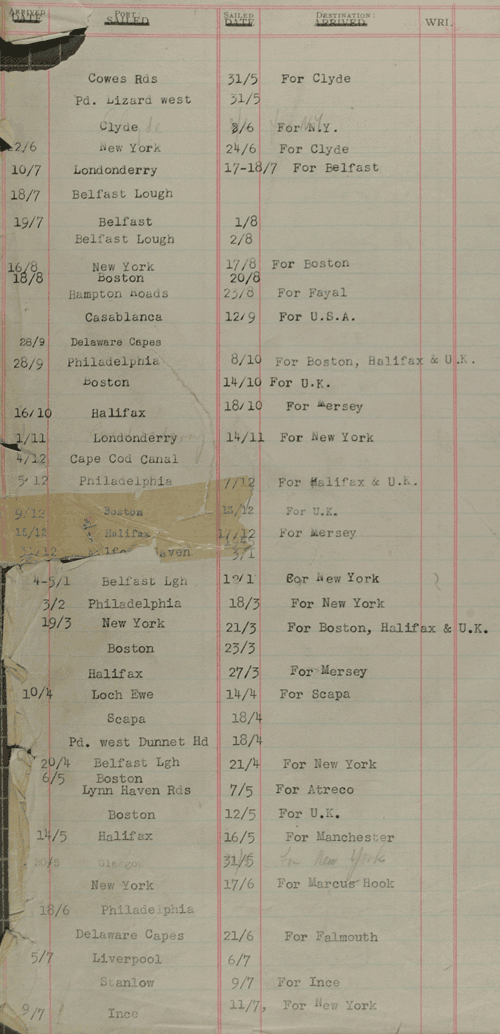 ARRIVED DATE PORT SAILED SAILED DATE DESTINATION ARRIVED WRL.
Cowes Rds 31/5 For Clyde
Pd. Lizard west 31/5
Clyde 2/6 For N.Y.
2/6 New York 24/6 For Clyde
10/7 Londonderry 17-18/7 For Belfast
18/7 Belfast Lough
19/7 Belfast 1/8
Belfast Lough 2/8
16/8 New York 17/8 For Boston
18/8 Boston 20/8
Hampton Roads 23/8 For Fayal
Casablanca 12/9 For U.S.A.
28/9 Delaware Capes
28/9 Philadelphia 8/10 For Boston, Halifax & U.K.
Boston 14/10 For U.K.
16/10 Halifax 18/10 For Mersey
1/11 Londonderry 14/11 For New York
4/12 Cape Cod Canal
5/12 Philadelphia 7/12 For Halifax & U.K.
9/12 Boston 13/12 For U.K.
15/12 Halifax 17/12 For Mersey
31/12 Haven 3/1
4-5/1 Belfast Lgh For New York
3/2 Philadelphia 18/3 For New York
19/3 New York 21/3 For Boston, Halifax & U.K.
Boston 23/3
Halifax 27/3 For Mersey
10/4 Loch Ewe 14/4 For Scapa
Scapa 18/4
Pd. west Dunnet Hd 18/4
20/4 Belfast Lgh 21/4 For New York
6/5 Boston
Lynn Haven Rds 7/5 For Atreco
Boston 12/5 For U.K.
14/5 Halifax 16/5 For Manchester
Glasgow 31/5 for New York
New York 17/6 For Marcus Hook
18/6 Philadelphia
Delaware Capes 21/6 For Falmouth
5/7 Liverpool 6/7
Stanlow 9/7 For Ince
9/7 Ince 11/7, For New York